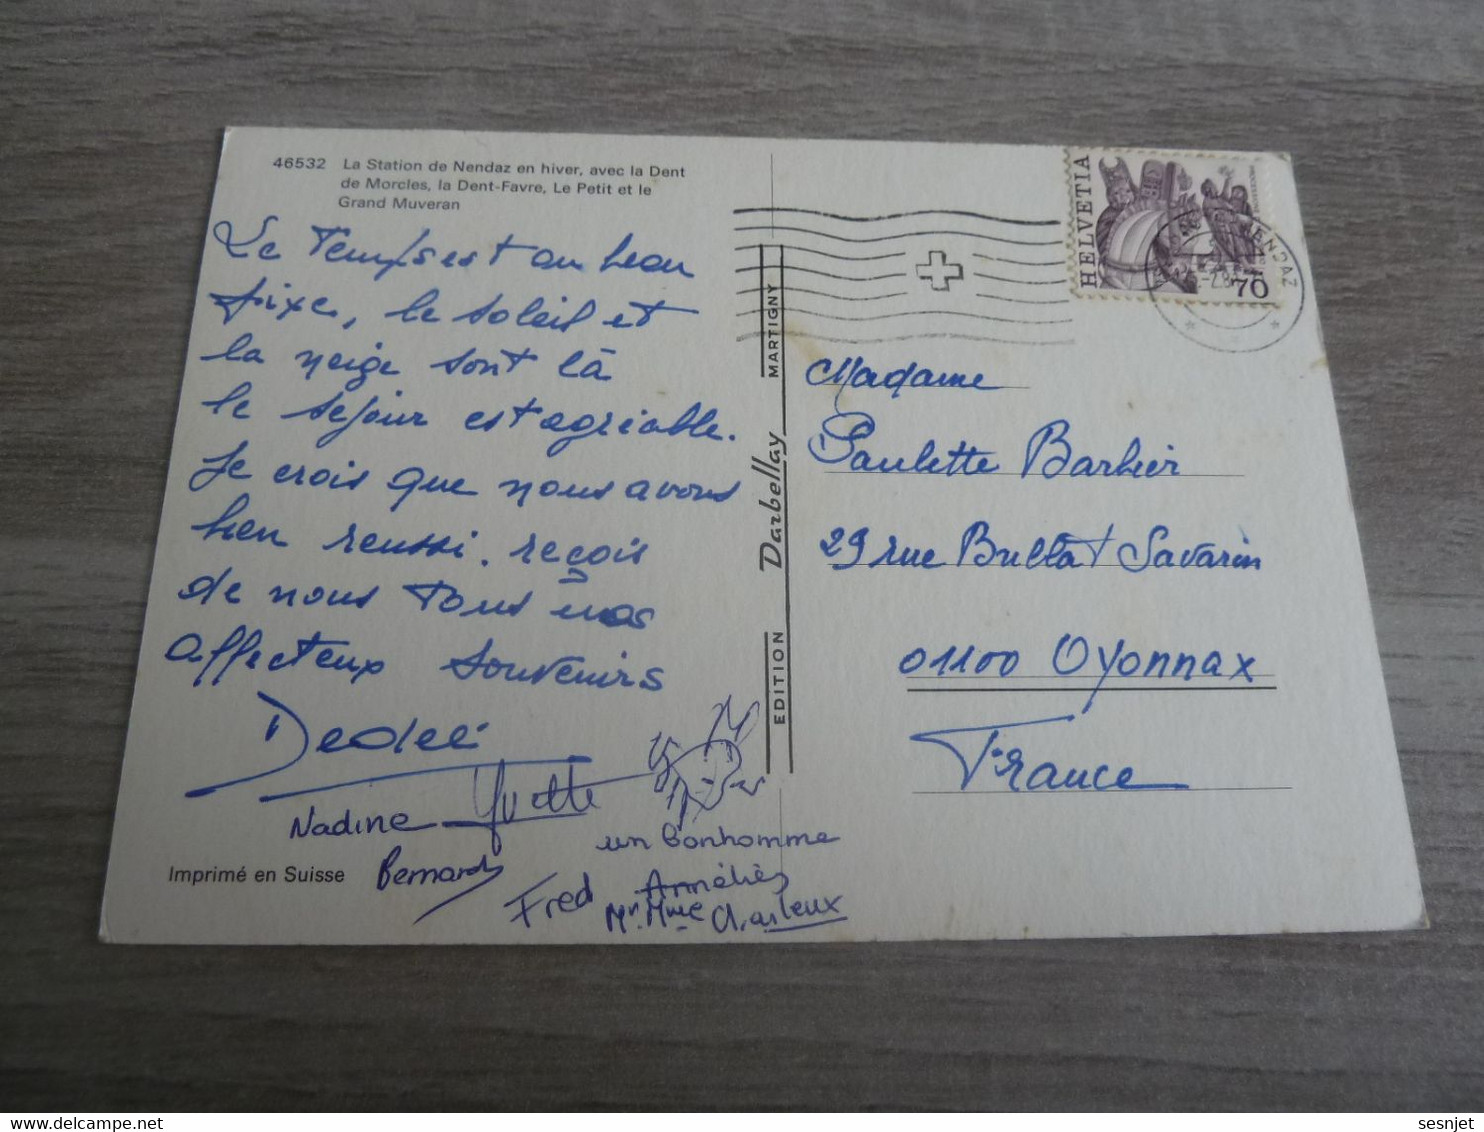 46532 La Station de Nendaz en hiver, avec la Dent
de Morcles, la Dent-Favre, Le Petit et le
Grand Muveran
Le Temps est au beau
fixe, le soleil et
la neige sont là
le sejour est agréable.
Je crois que nous avons
bien reussi. reçois
de nous Tous nos
affecteux souvenirs
Dedee
Nadine Yvette
un bonhomme
Bernard
Fred Amélie
Mr. Mme Charleux
Imprimé en Suisse
EDITION Darbellay MARTIGNY
HELVETIA
70
NENDAZ
Madame
Paulette Barbier
29 rue Brillat Savarin
01100 Oyonnax
France
sesnjet